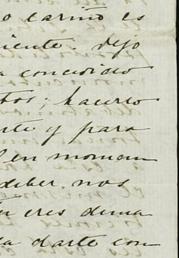 o cariño es
iente. Dejo
a conocido
tos; hacerlo
rte y para
l en momen
deber nos
u eres dema
a darte con